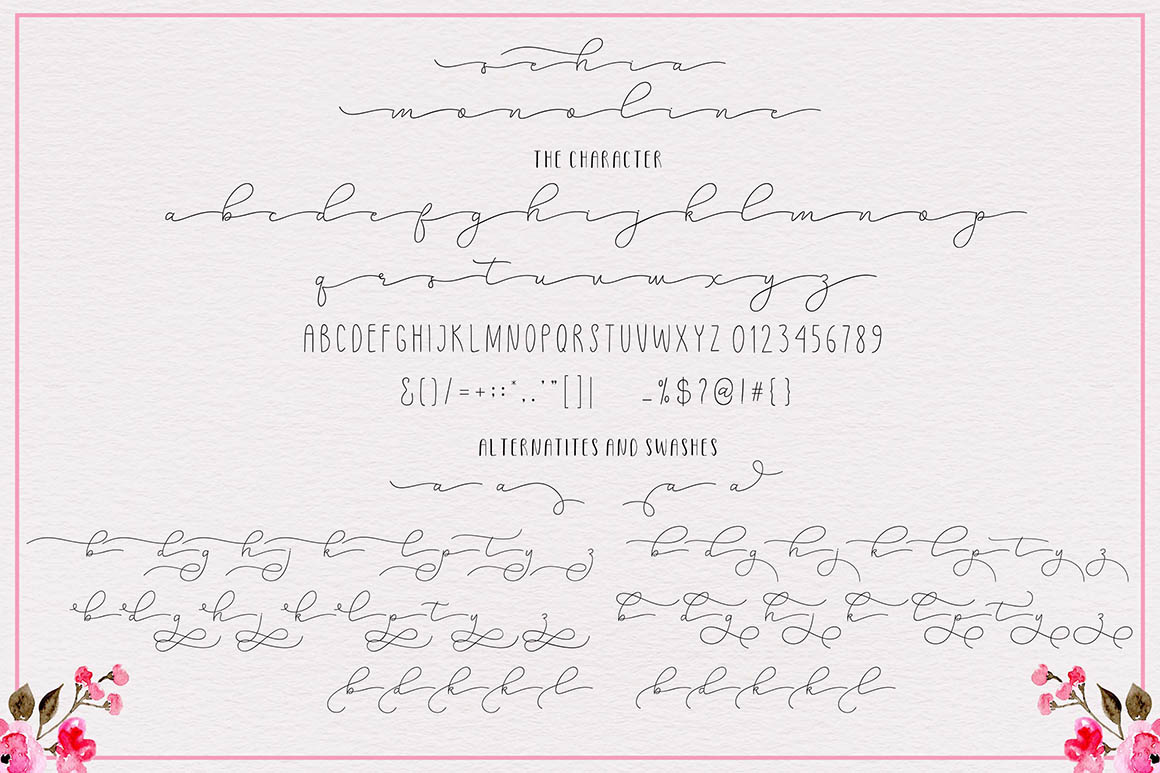 schia
monoline
THE CHARACTER
a b c d e f g h i j k l m n o p
q r s t u v w x y z
ABCDEFGHIJKLMNOPQRSTUVWXYZ 0123456789
&()/=+;:*,.'"[]| _%$?@|#{}
ALTERNATITES AND SWASHES
a a a a
b d g h j k l p t y z b d g h j k l p t y z
b d g h j k l p t y z b d g h j k l p t y z
b d k k l b d k k l